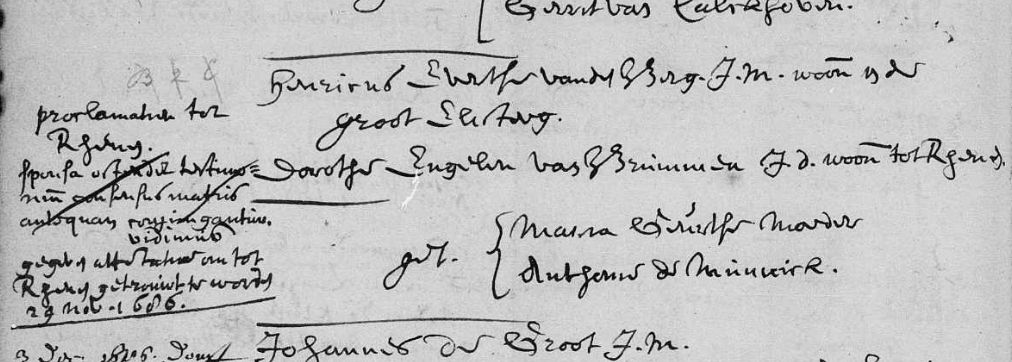 Gerrit van Calckhoven.
Henricus Evertse vanden Berg. J.M. woon. in de
groot Elsterg.
Dorothe Engelen van Brummen J.d. woon. tot Rhenen.
get. Maria Geurtse Moeder
Anthonie de Munnick.
proclamatien tot
Rhenen.
sponsa ostendet testimo=
nium consensus matris
antequam conjungantur.
vidimus
gegeven attestatie om tot
Rhenen getrouwt te worden
29 Nov. 1686.
Johannes de Groot J.M.
3 Dec. 1686.